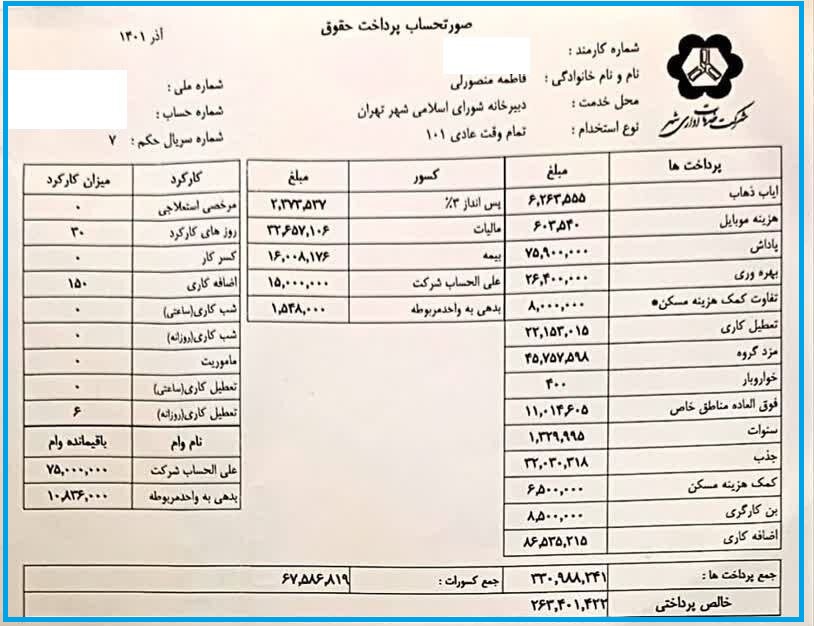 صورتحساب پرداخت حقوق
آذر ۱۴۰۱
شماره کارمند :
نام و نام خانوادگی : فاطمه منصورلی
محل خدمت : دبیرخانه شورای اسلامی شهر تهران
نوع استخدام : تمام وقت عادی ۱۰۱
شماره ملی :
شماره حساب :
شماره سریال حکم : ۷
شرکت
پرداخت ها مبلغ
ایاب ذهاب ۶,۲۶۳,۵۵۵
هزینه موبایل ۶۰۳,۵۴۰
پاداش ۷۵,۹۰۰,۰۰۰
بهره وری ۲۶,۴۰۰,۰۰۰
تفاوت کمک هزینه مسکن* ۸,۰۰۰,۰۰۰
تعطیل کاری ۲۲,۱۵۳,۰۱۵
مزد گروه ۴۵,۷۵۷,۵۹۸
خواروبار ۴۰۰
فوق العاده مناطق خاص ۱۱,۰۱۴,۶۰۵
سنوات ۱,۳۲۹,۹۹۵
جذب ۳۲,۰۳۰,۳۱۸
کمک هزینه مسکن ۶,۵۰۰,۰۰۰
بن کارگری ۸,۵۰۰,۰۰۰
اضافه کاری ۸۶,۵۳۵,۲۱۵
کسور مبلغ
پس انداز ۳% ۲,۳۷۳,۵۳۷
مالیات ۳۲,۶۵۷,۱۰۶
بیمه ۱۶,۰۰۸,۱۷۶
علی الحساب شرکت ۱۵,۰۰۰,۰۰۰
بدهی به واحدمربوطه ۱,۵۴۸,۰۰۰
کارکرد میزان کارکرد
مرخصی استعلاجی ۰
روز های کارکرد ۳۰
کسر کار ۰
اضافه کاری ۱۵۰
شب کاری(ساعتی) ۰
شب کاری(روزانه) ۰
ماموریت ۰
تعطیل کاری(ساعتی) ۰
تعطیل کاری(روزانه) ۶
نام وام باقیمانده وام
علی الحساب شرکت ۷۵,۰۰۰,۰۰۰
بدهی به واحدمربوطه ۱۰,۸۳۶,۰۰۰
جمع پرداخت ها : ۳۳۰,۹۸۸,۲۴۱ جمع کسورات : ۶۷,۵۸۶,۸۱۹
خالص پرداختی ۲۶۳,۴۰۱,۴۲۲